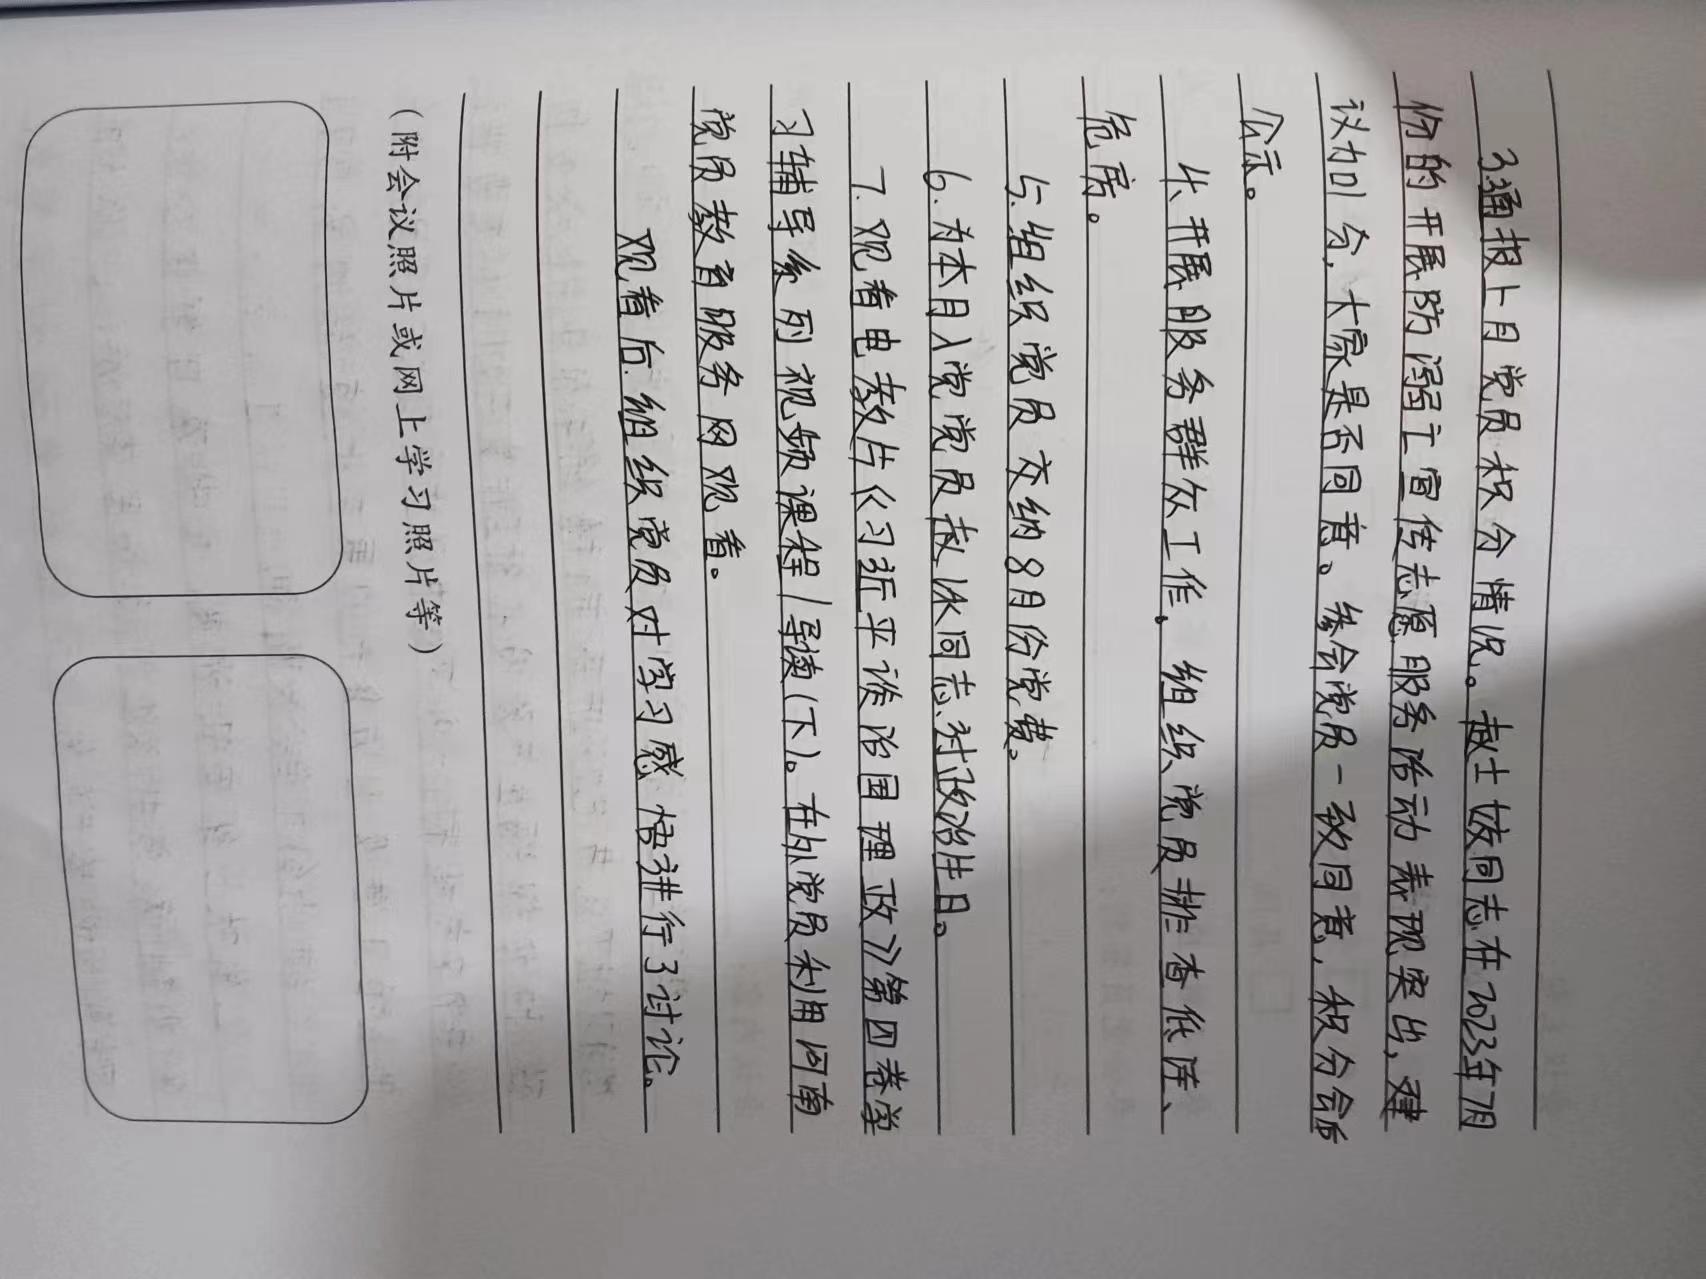 3通报上月党员积分情况。赵士效同志在2023年7月
份的开展防溺亡宣传志愿服务活动表现突出,建
议加1分,大家是否同意。参会党员一致同意,积分会后
公示。
4、开展服务群众工作。组织党员排查低洼、
危房。
5.组织党员交纳8月份党费。
6.为本月入党党员赵冰同志过政治生日。
7.观看电教片《习近平谈治国理政》第四卷学
习辅导系列视频课程/导读(下)。在外党员利用河南
党员教育服务网观看。
观看后.组织党员对学习感悟进行了讨论。
(附会议照片或网上学习照片等)